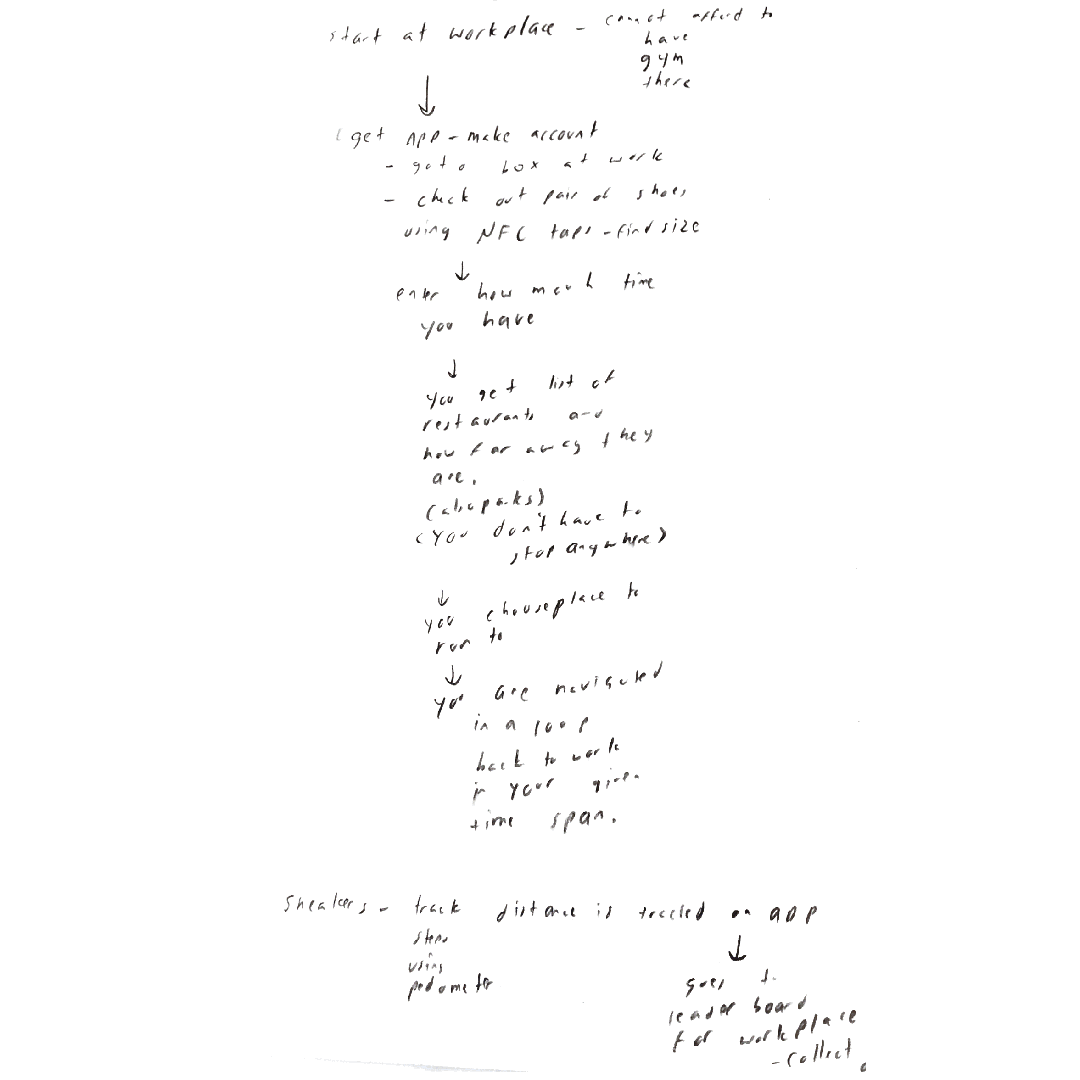 start at workplace - cannot afford to
have
gym
there
get app - make account
- go to box at work
- check out pair of shoes
using NFC taps - find size
enter how much time
you have
you get list of
restaurants and
how far away they
are.
(also parks)
(you don't have to
stop anywhere)
you choose place to
run to
you are navigated
in a loop
back to work
in your given
time span.
Sneakers - track distance is tracked on app
steps
using
pedometer
goes to
leader board
for workplace
- collect